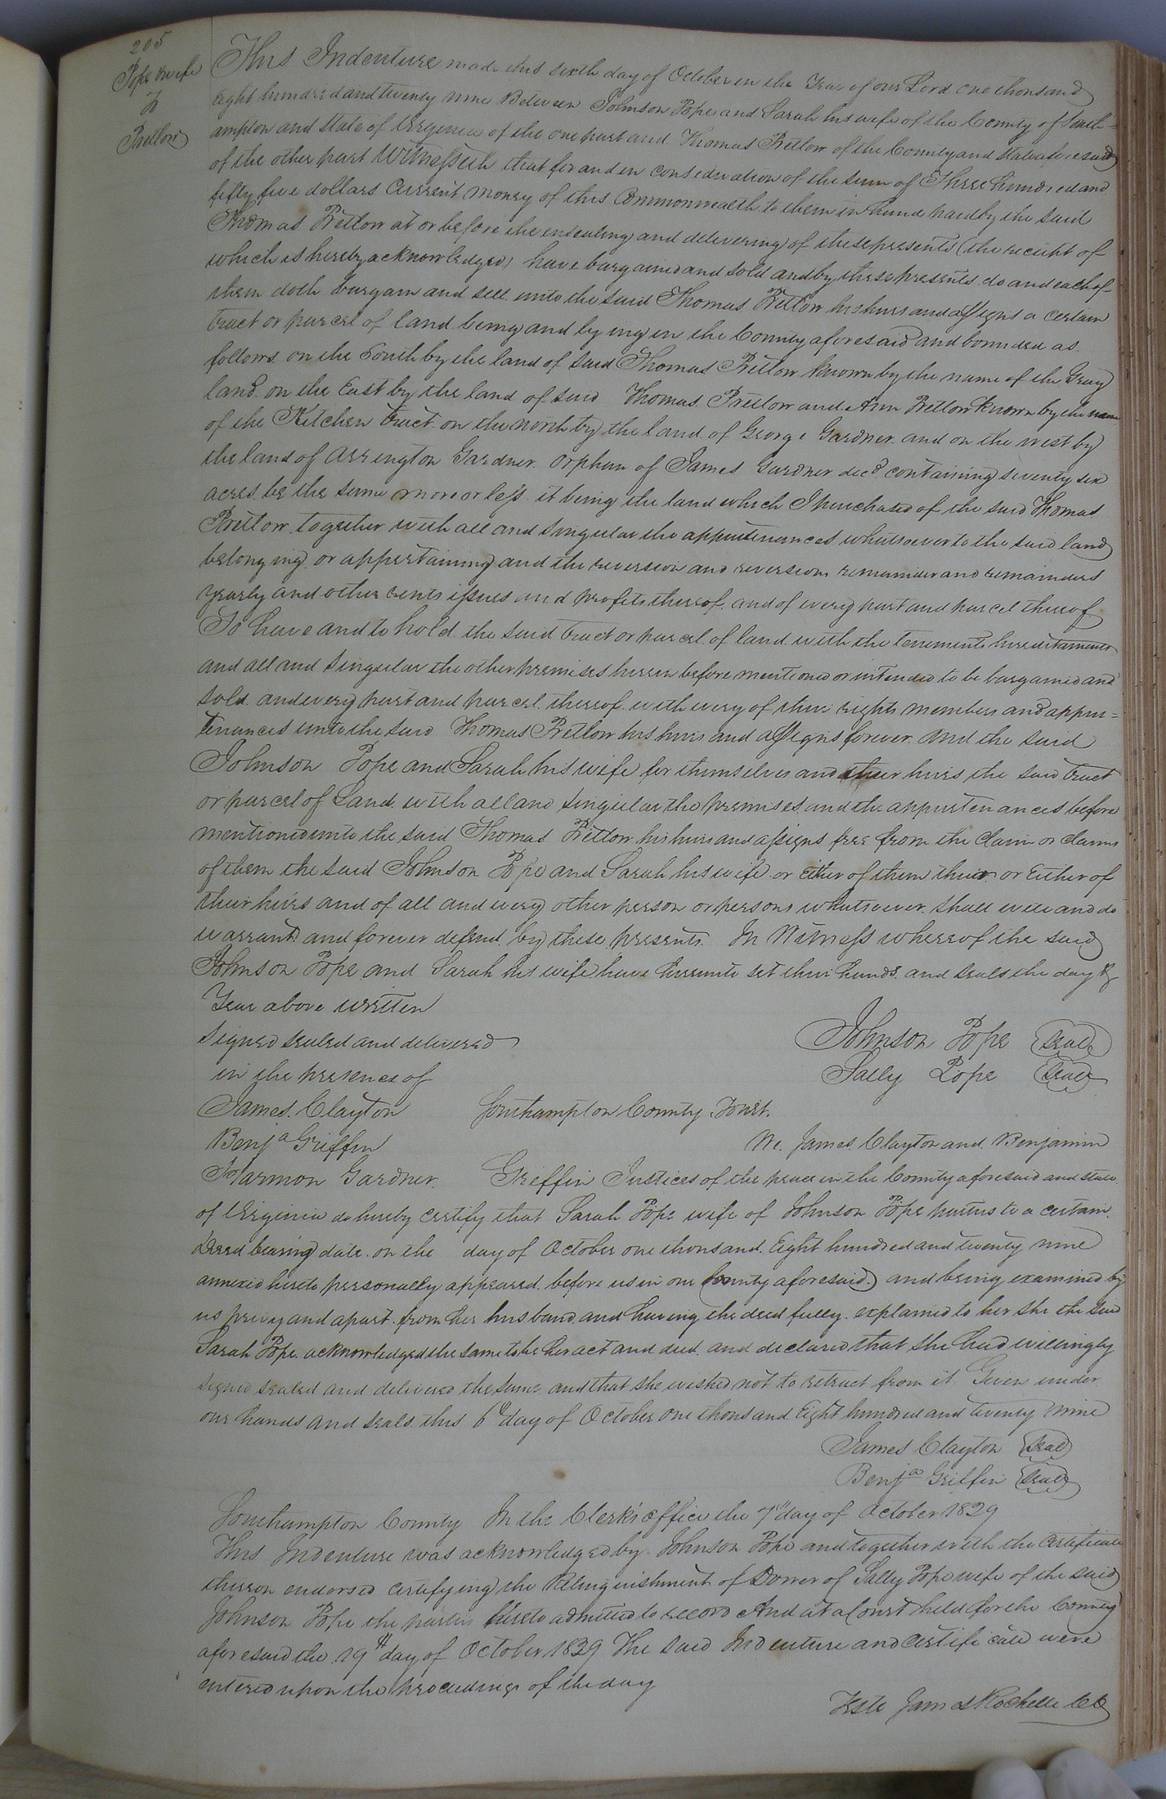 205
Pope & wife
To
Pretlow
This Indenture made this sixth day of October in the Year of our Lord one thousand
Eight hundred and twenty nine Between Johnson Pope and Sarah his wife of the County of South=
ampton and State of Virginia of the one part and Thomas Pretlow of the County and State aforesaid
of the other part Witnesseth that for and in consideration of the sum of Three hundred and
fifty five dollars Current money of this Commonwealth to them in hand paid by the said
Thomas Pretlow at or before the ensealing and delivering of these presents (the receipt of
which is hereby acknowledged) have bargained and sold and by these presents do and each of
them doth bargain and sell unto the said Thomas Pretlow his heirs and assigns a certain
tract or parcel of land being and lying in the County aforesaid and bounded as
follows. on the South by the land of said Thomas Pretlow known by the name of the Gray
land. on the East by the land of said Thomas Pretlow and Ann Pretlow known by the name
of the Kitchen tract on the north by the land of George Gardner. and on the west by
the land of Arrington Gardner. Orphan of James Gardner decd. containing seventy six
acres. be the same more or less it being the land which I purchased of the said Thomas
Pretlow. together with all and singular the appurtenances whatsoever to the said land
belonging or appertaining and the reversion and reversions remainder and remainders
yearly and other rents issues and profits thereof. and of every part and parcel thereof
To have and to hold the said tract or parcel of land with the tenements hereditaments
and all and singular the other premises herein before mentioned or intended to be bargained and
sold. and every part and parcel thereof. with every of their rights members and appur=
tenances unto the said Thomas Pretlow his heirs and assigns forever. And the said
Johnson Pope and Sarah his wife for themselves and their heirs the said tract
or parcel of Land with all and singular the premises and the appurtenances before
mentioned unto the said Thomas Pretlow his heirs and assigns free from the claim or claims
of them the said Johnson Pope and Sarah his wife or either of them their or Either of
their heirs and of all and every other person or persons whatsoever. shall will and do
warrant and forever defend by these presents. In Witness whereof the said
Johnson Pope and Sarah his wife have hereunto set their hands. and seals the day &
Year above written
Signed sealed and delivered
in the presence of
Johnson Pope (Seal)
Sally Pope (Seal)
James. Clayton
Benja Griffin
Harmon Gardner.
Southampton County. Towit.
We. James Clayton and Benjamin
Griffin Justices of the peace in the County aforesaid and state
of Virginia do hereby certify that Sarah Pope wife of Johnson Pope parties to a certain
Deed bearing date. on the day of October one thousand. Eight hundred and twenty nine
annexed hereto personally appeared. before us in our County aforesaid. and being examined by
us privy and apart. from her husband and having the deed fully. explained to her she the said
Sarah Pope. acknowledged the same to be her act and deed. and declared that she had willingly
signed sealed and delivered the same and that she wished not to retract from it Given under
our hands and seals. this 6th day of October one thousand Eight hundred and twenty nine
James Clayton (Seal)
Benja Griffin (Seal)
Southampton County In the Clerk's office the 7th day of October 1829
This Indenture was acknowledged by Johnson Pope and together with the certificate
thereon endorsed certifying the Relinquishment of Dower of Sally Pope wife of the said
Johnson Pope the parties hereto admitted to record And at a Court held for the County
aforesaid the 19th day of October 1829 The said Indenture and Certificate were
entered upon the proceedings of the day
Teste James Rochelle